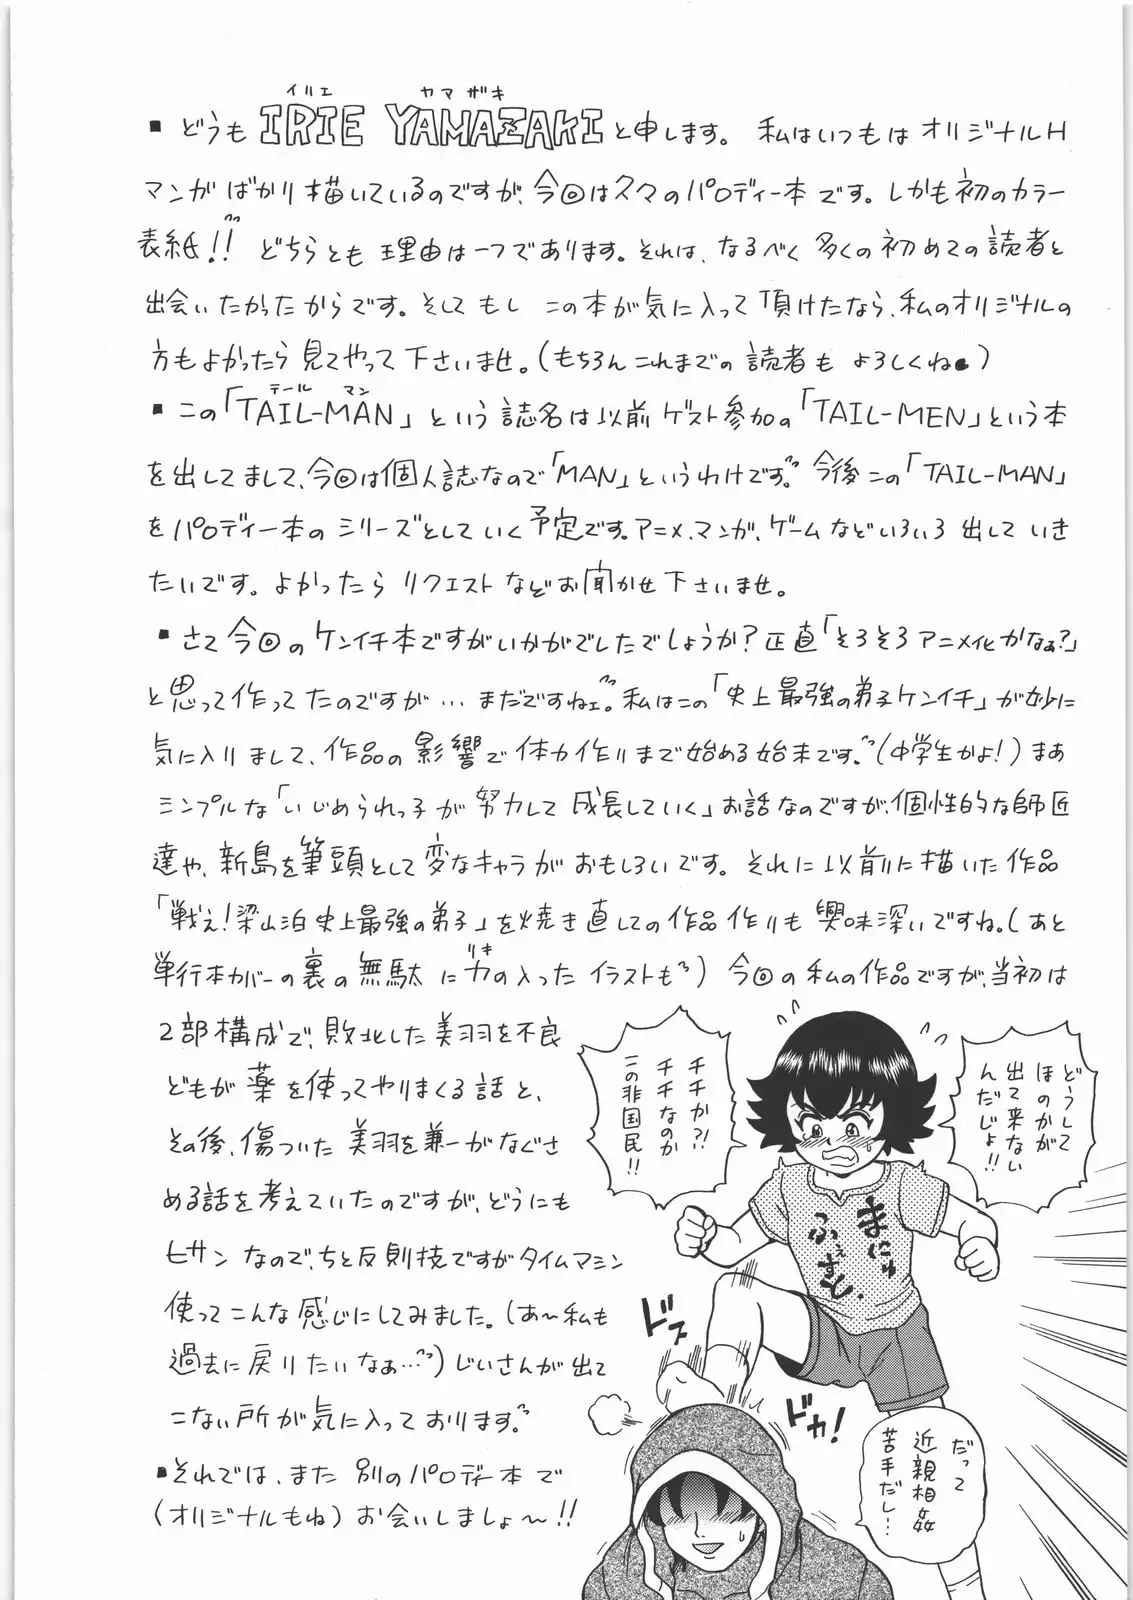 イリエ ヤマザキ
■どうも IRIE YAMAZAKI と申します。私はいつもはオリジナルH
マンガばかり描いているのですが、今回は久々のパロディー本です。しかも初のカラー
表紙!! どちらとも理由は一つであります。それは、なるべく多くの初めての読者と
出会いたかったからです。そしてもし この本が気に入って頂けたなら、私のオリジナルの
方もよかったら見てやって下さいませ。(もちろんこれまでの読者も よろしくね。)
テール マン
■この「TAIL-MAN」という誌名は以前ゲスト参加の「TAIL-MEN」という本
を出してまして、今回は個人誌なので「MAN」というわけです。今後この「TAIL-MAN」
をパロディー本のシリーズとしていく予定です。アニメ、マンガ、ゲームなどいろいろ出していき
たいです。よかったら リクエストなどお聞かせ下さいませ。
■さて今回のケンイチ本ですがいかがでしたでしょうか?正直「そろそろアニメ化かなぁ?」
と思って作ってたのですが…まだですねェ。私はこの「史上最強の弟子ケンイチ」が妙に
気に入りまして、作品の影響で体力作りまで始める始末です。(中学生かよ!)まあ
シンプルな「いじめられっ子が努力して成長していく」お話なのですが、個性的な師匠
達や、新島を筆頭として変なキャラがおもしろいです。それに以前に描いた作品
「戦え!梁山泊史上最強の弟子」を焼き直しての作品作りも興味深いですね。(あと
単行本カバーの裏の無駄に力の入ったイラストも)今回の私の作品ですが、当初は
リキ
2部構成で、敗北した美羽を不良
どもが薬を使ってやりまくる話と、
その後、傷ついた美羽を兼一がなぐさ
める話を考えていたのですが、どうにも
ヒサンなので、ちと反則技ですがタイムマシン
使ってこんな感じにしてみました。(あ〜私も
過去に戻りたいなぁ…)じいさんが出て
こない所が気に入っております。
■それでは、また別のパロディー本で
(オリジナルもね)お会いしましょ〜!!
どうして
ほのかが
出て来ない
んだじょ!!
チチか?!
チチなのか
この非国民!!
まにゅ
ふぇすと。
ドス
ドカ!
だって
近親相姦
苦手だし…